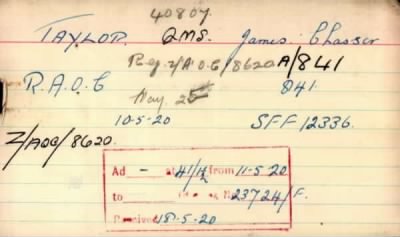 40807.
TAYLOR. QMS. James Chasser
Reg. Z/A.O.C/8620 A/841
R.A.O.C 841.
Nay. 25
10-5-20 SFF 12336.
Z/AOC/8620.
Ad - at 41/12 from 11-5-20
to 23724/F.
Received 18.5.20